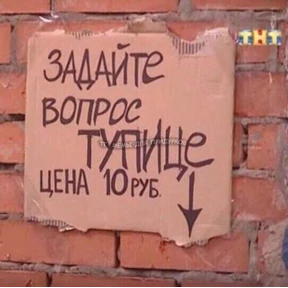 ТНТ
ЗАДАЙТЕ
ВОПРОС
ТУПИЦЕ
ЦЕНА 10 РУБ.